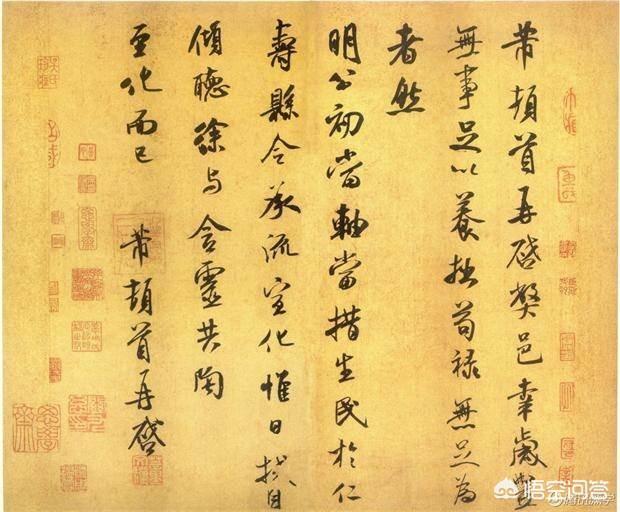 芾頓首再啓弊邑幸歲豐
無事足以養拙苟禄無足為
者然
明公初當軸當措生民於仁
壽縣令承流宣化惟日拭目
傾聽徐与含靈共陶
至化而已 芾頓首再啓
悟空问答